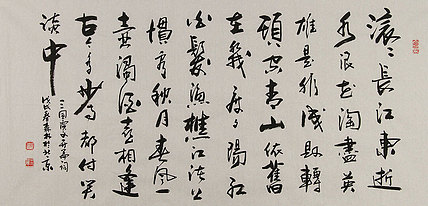 滚滚長江東逝
水浪花淘盡英
雄是非成敗轉
頭空青山依舊
在幾度夕陽紅
白髮漁樵江渚上
慣看秋月春風一
壺濁酒喜相逢
古今多少事都付笑
談中
三國演义开篇词
戊戌春 於北京